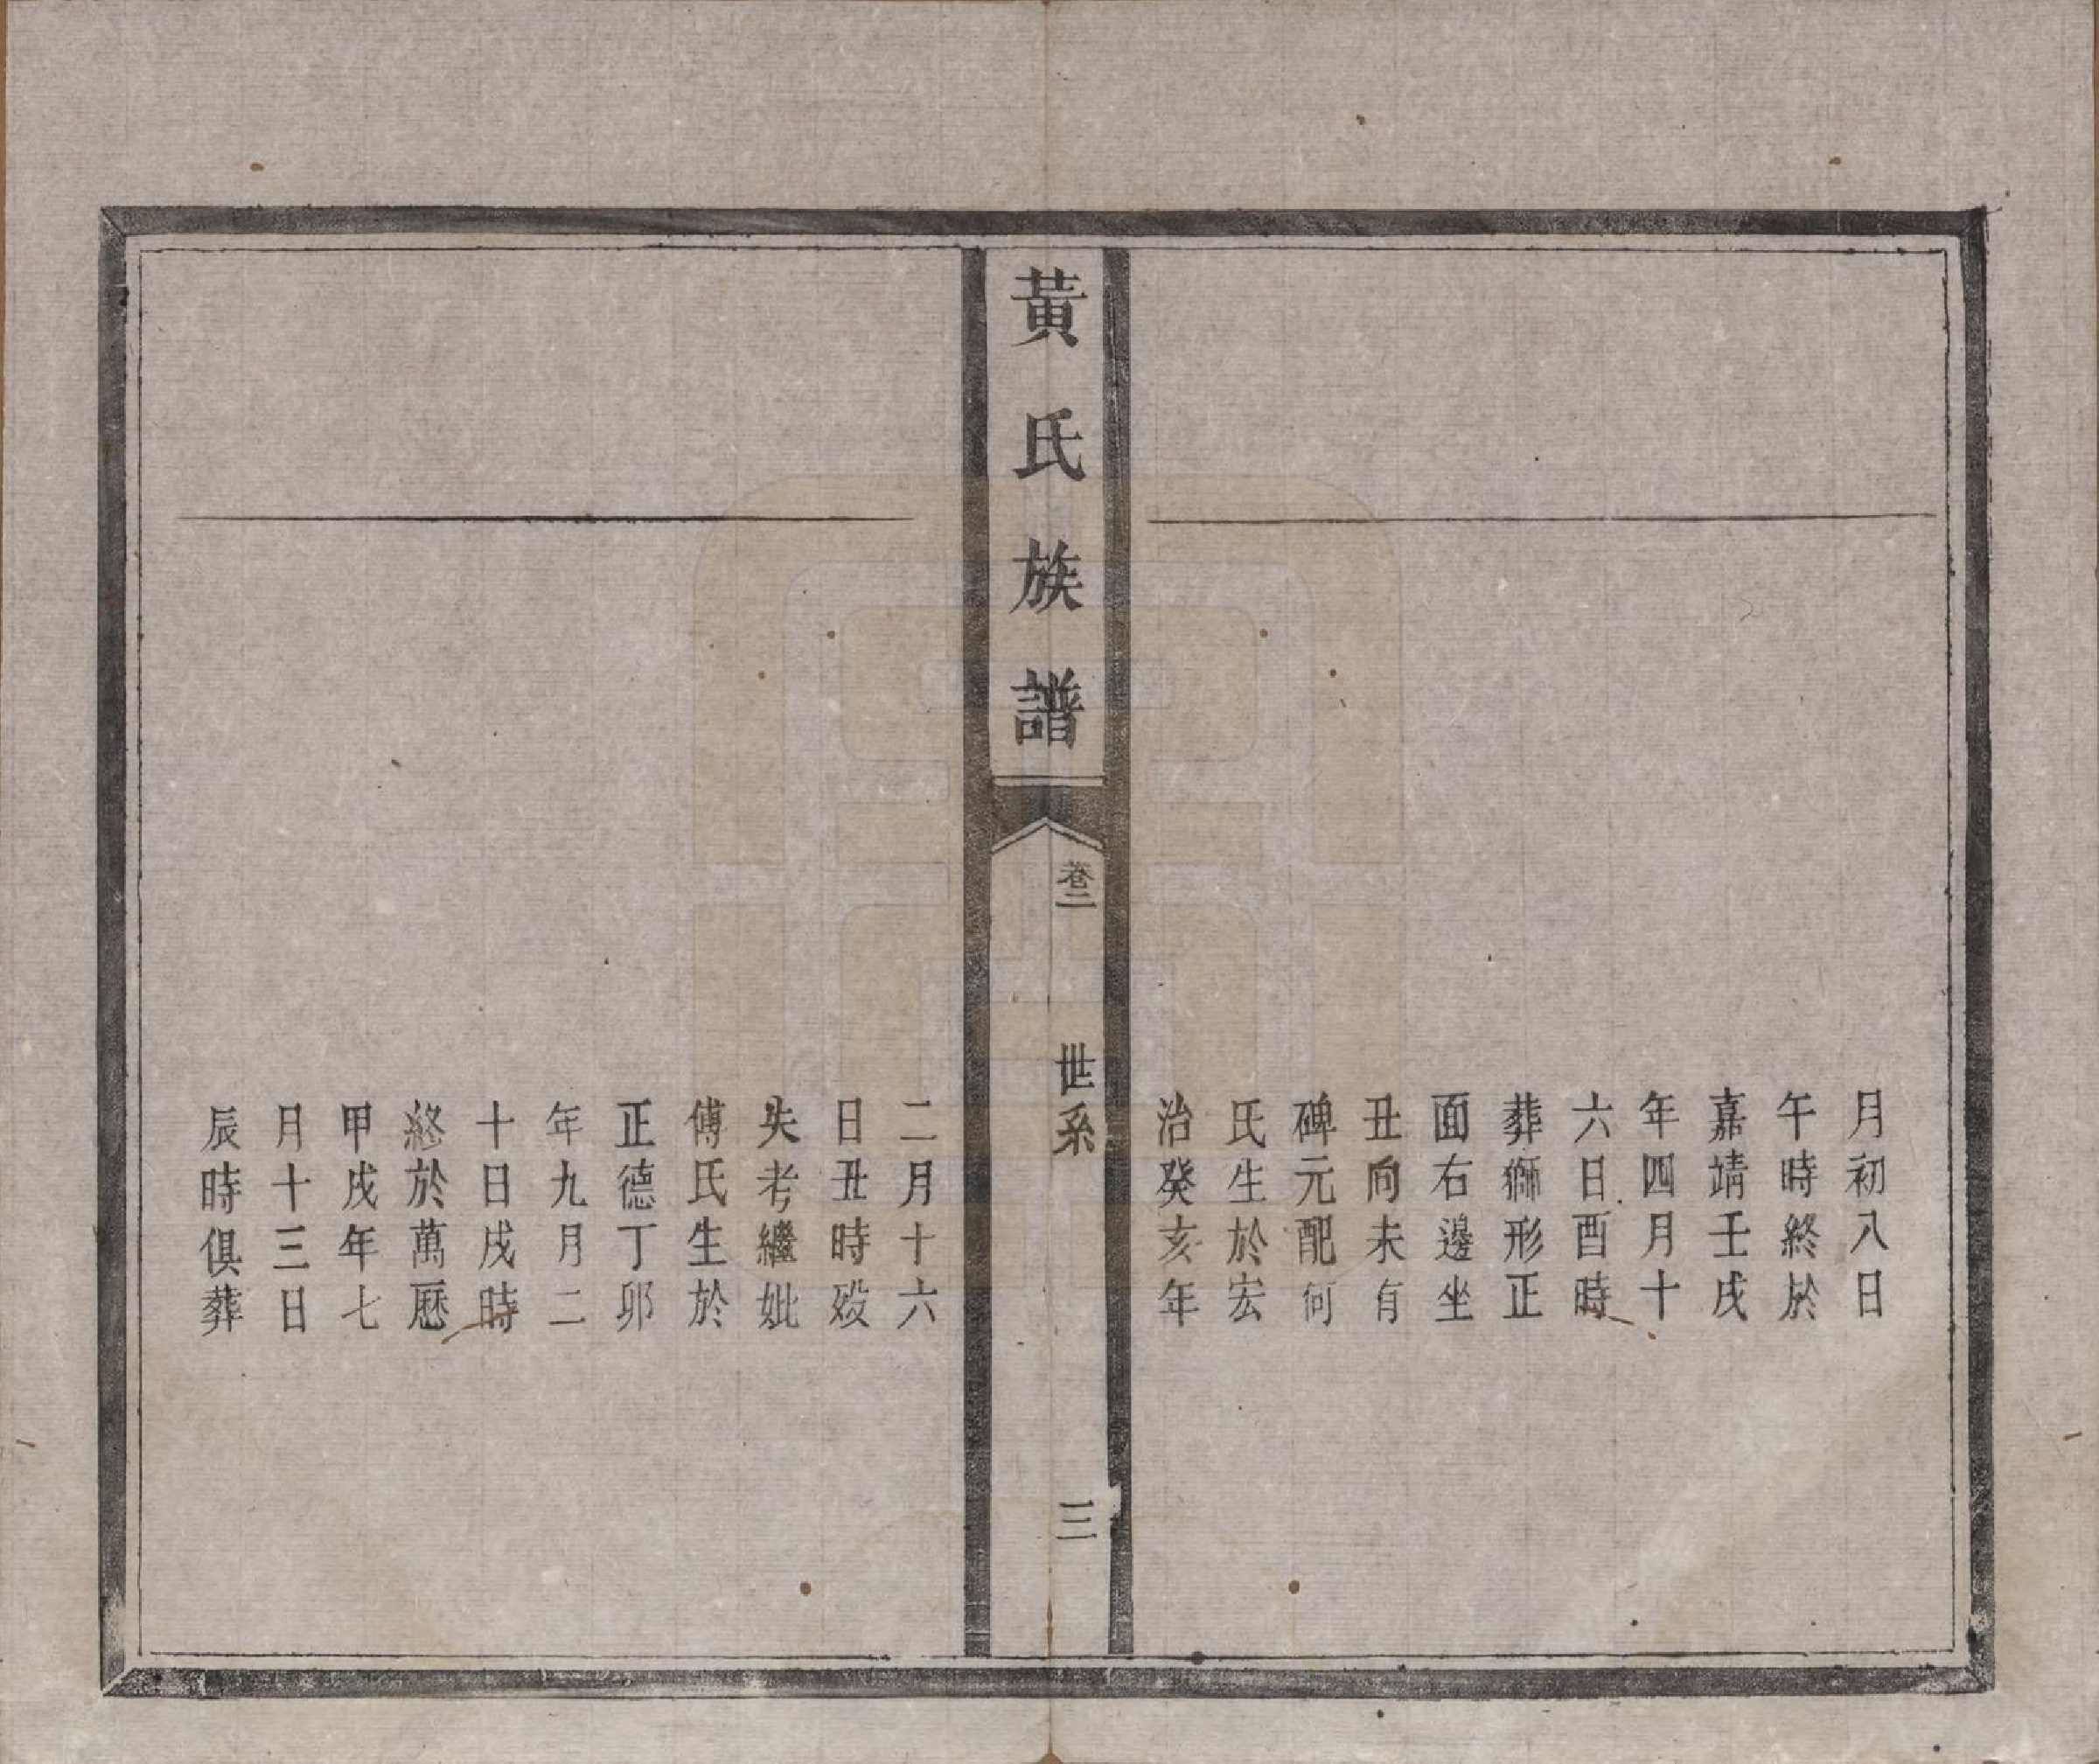 月初八日
午時終於
嘉靖壬戌
年四月十
六日酉時
葬獅形正
面右邊坐
丑向未有
碑元配何
氏生於宏
治癸亥年
黃氏族譜
卷二
世系
三
二月十六
日丑時歿
失考繼妣
傅氏生於
正德丁卯
年九月二
十日戌時
終於萬厯
甲戌年七
月十三日
辰時俱葬